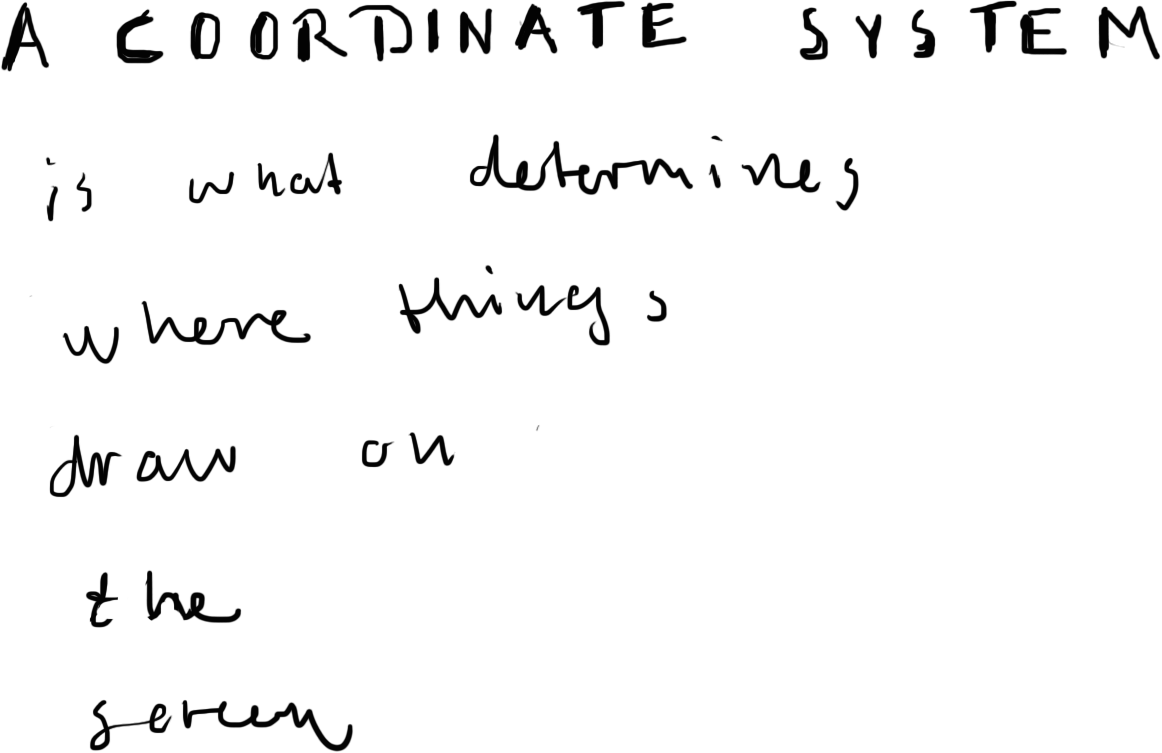 A COORDINATE SYSTEM
is what determines
where things
draw on
the
screen